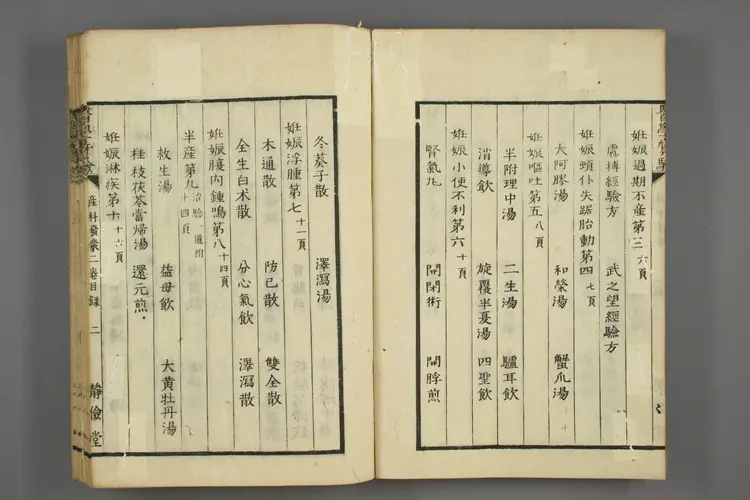 妊娠過期不産第三 六頁
虞摶經驗方 武之望經驗方
妊娠顛仆失踞胎動第四 七頁
大阿膠湯 和榮湯 蟹爪湯
妊娠嘔吐第五 八頁
半附理中湯 二生湯 驢耳飲
消導飲 旋覆半夏湯 四聖飲
妊娠小便不利第六 十頁
腎氣丸 開閉術 開脬煎
冬葵子散 澤瀉湯
妊娠浮腫第七 十一頁
木通散 防已散 雙全散
全生白朮散 分心氣飲 澤瀉散
妊娠腹内鍾鳴第八 十四頁
半産第九 治驗一道附 十四頁
救生湯 益母飲 大黄牡丹湯
桂枝茯苓當歸湯 還元煎
妊娠淋疾第十 十六頁
産科發蒙二卷目録 二 靜儉堂